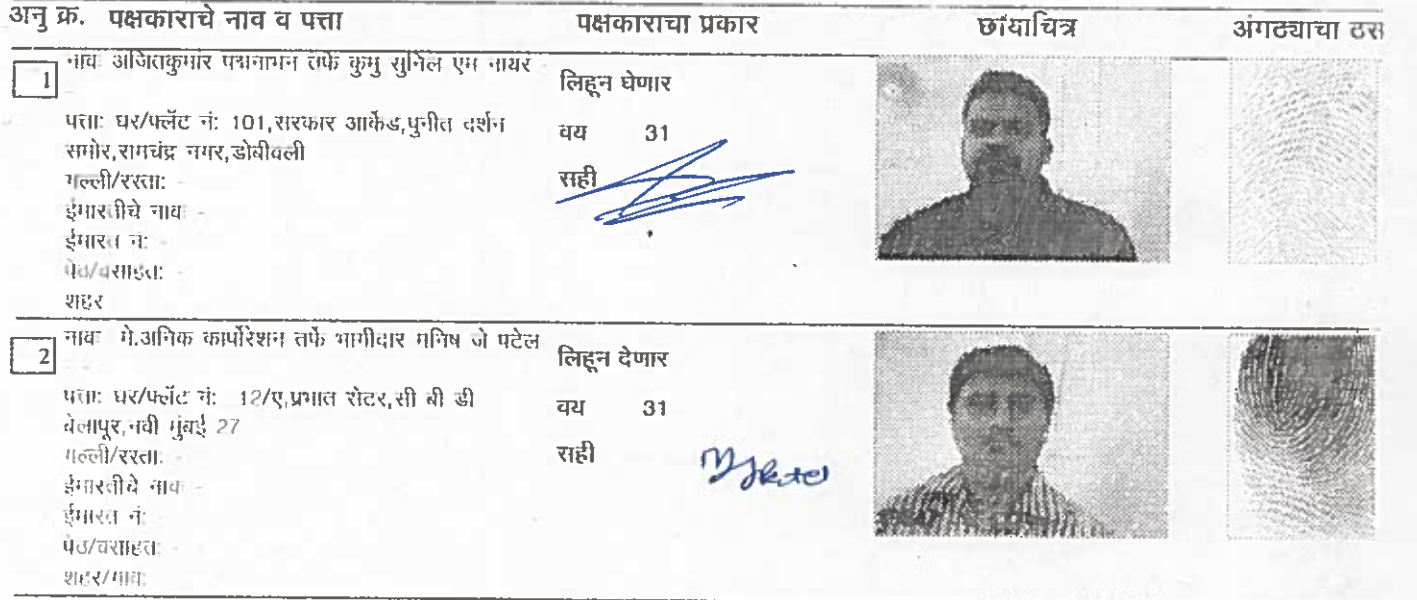 अनु क्र. पक्षकाराचे नाव व पत्ता पक्षकाराचा प्रकार छायाचित्र अंगठ्याचा ठसा
1 नावः अजितकुमार पद्मनाभन तर्फे कुमु सुनिल एम नायर लिहून घेणार
पत्ताः घर/फ्लॅट नंः 101,सरकार आर्केड,पुनीत दर्शन वय 31
समोर,रामचंद्र नगर,डोंबीवली
गल्ली/रस्ताः - सही
ईमारतीचे नावः -
ईमारत नंः -
पेठ/वसाहतः -
शहर
2 नावः मे.अनिक कार्पोरेशन तर्फे भागीदार मनिष जे पटेल लिहून देणार
पत्ताः घर/फ्लॅट नंः 12/ए,प्रभात सेंटर,सी बी डी वय 31
बेलापूर,नवी मुंबई 27
गल्ली/रस्ताः - सही
ईमारतीचे नावः -
ईमारत नंः -
पेठ/वसाहतः -
शहर/गावः